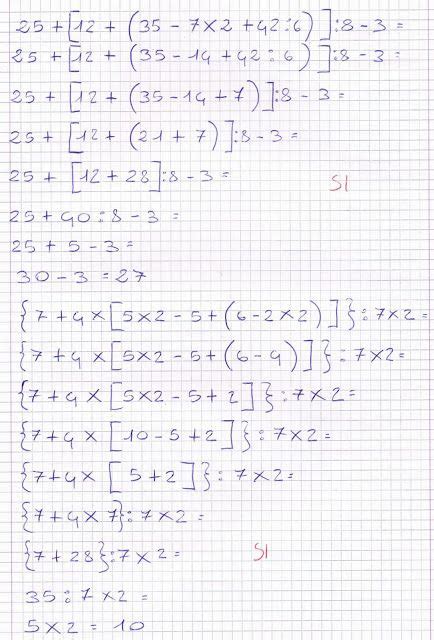 25 + [12 + (35 - 7 × 2 + 42 : 6)] : 8 - 3 =
25 + [12 + (35 - 14 + 42 : 6)] : 8 - 3 =
25 + [12 + (35 - 14 + 7)] : 8 - 3 =
25 + [12 + (21 + 7)] : 8 - 3 =
25 + [12 + 28] : 8 - 3 = SI
25 + 40 : 8 - 3 =
25 + 5 - 3 =
30 - 3 = 27
{7 + 4 × [5 × 2 - 5 + (6 - 2 × 2)]} : 7 × 2 =
{7 + 4 × [5 × 2 - 5 + (6 - 4)]} : 7 × 2 =
{7 + 4 × [5 × 2 - 5 + 2]} : 7 × 2 =
{7 + 4 × [10 - 5 + 2]} : 7 × 2 =
{7 + 4 × [5 + 2]} : 7 × 2 =
{7 + 4 × 7} : 7 × 2 =
{7 + 28} : 7 × 2 = SI
35 : 7 × 2 =
5 × 2 = 10